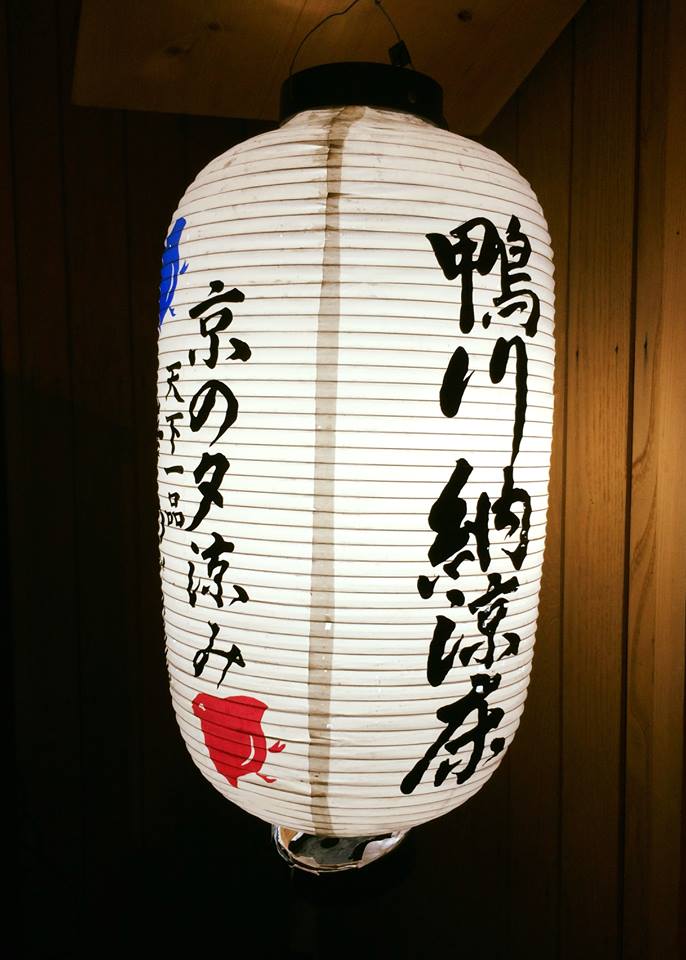 鴨川納涼床
京の夕涼み
天下一品